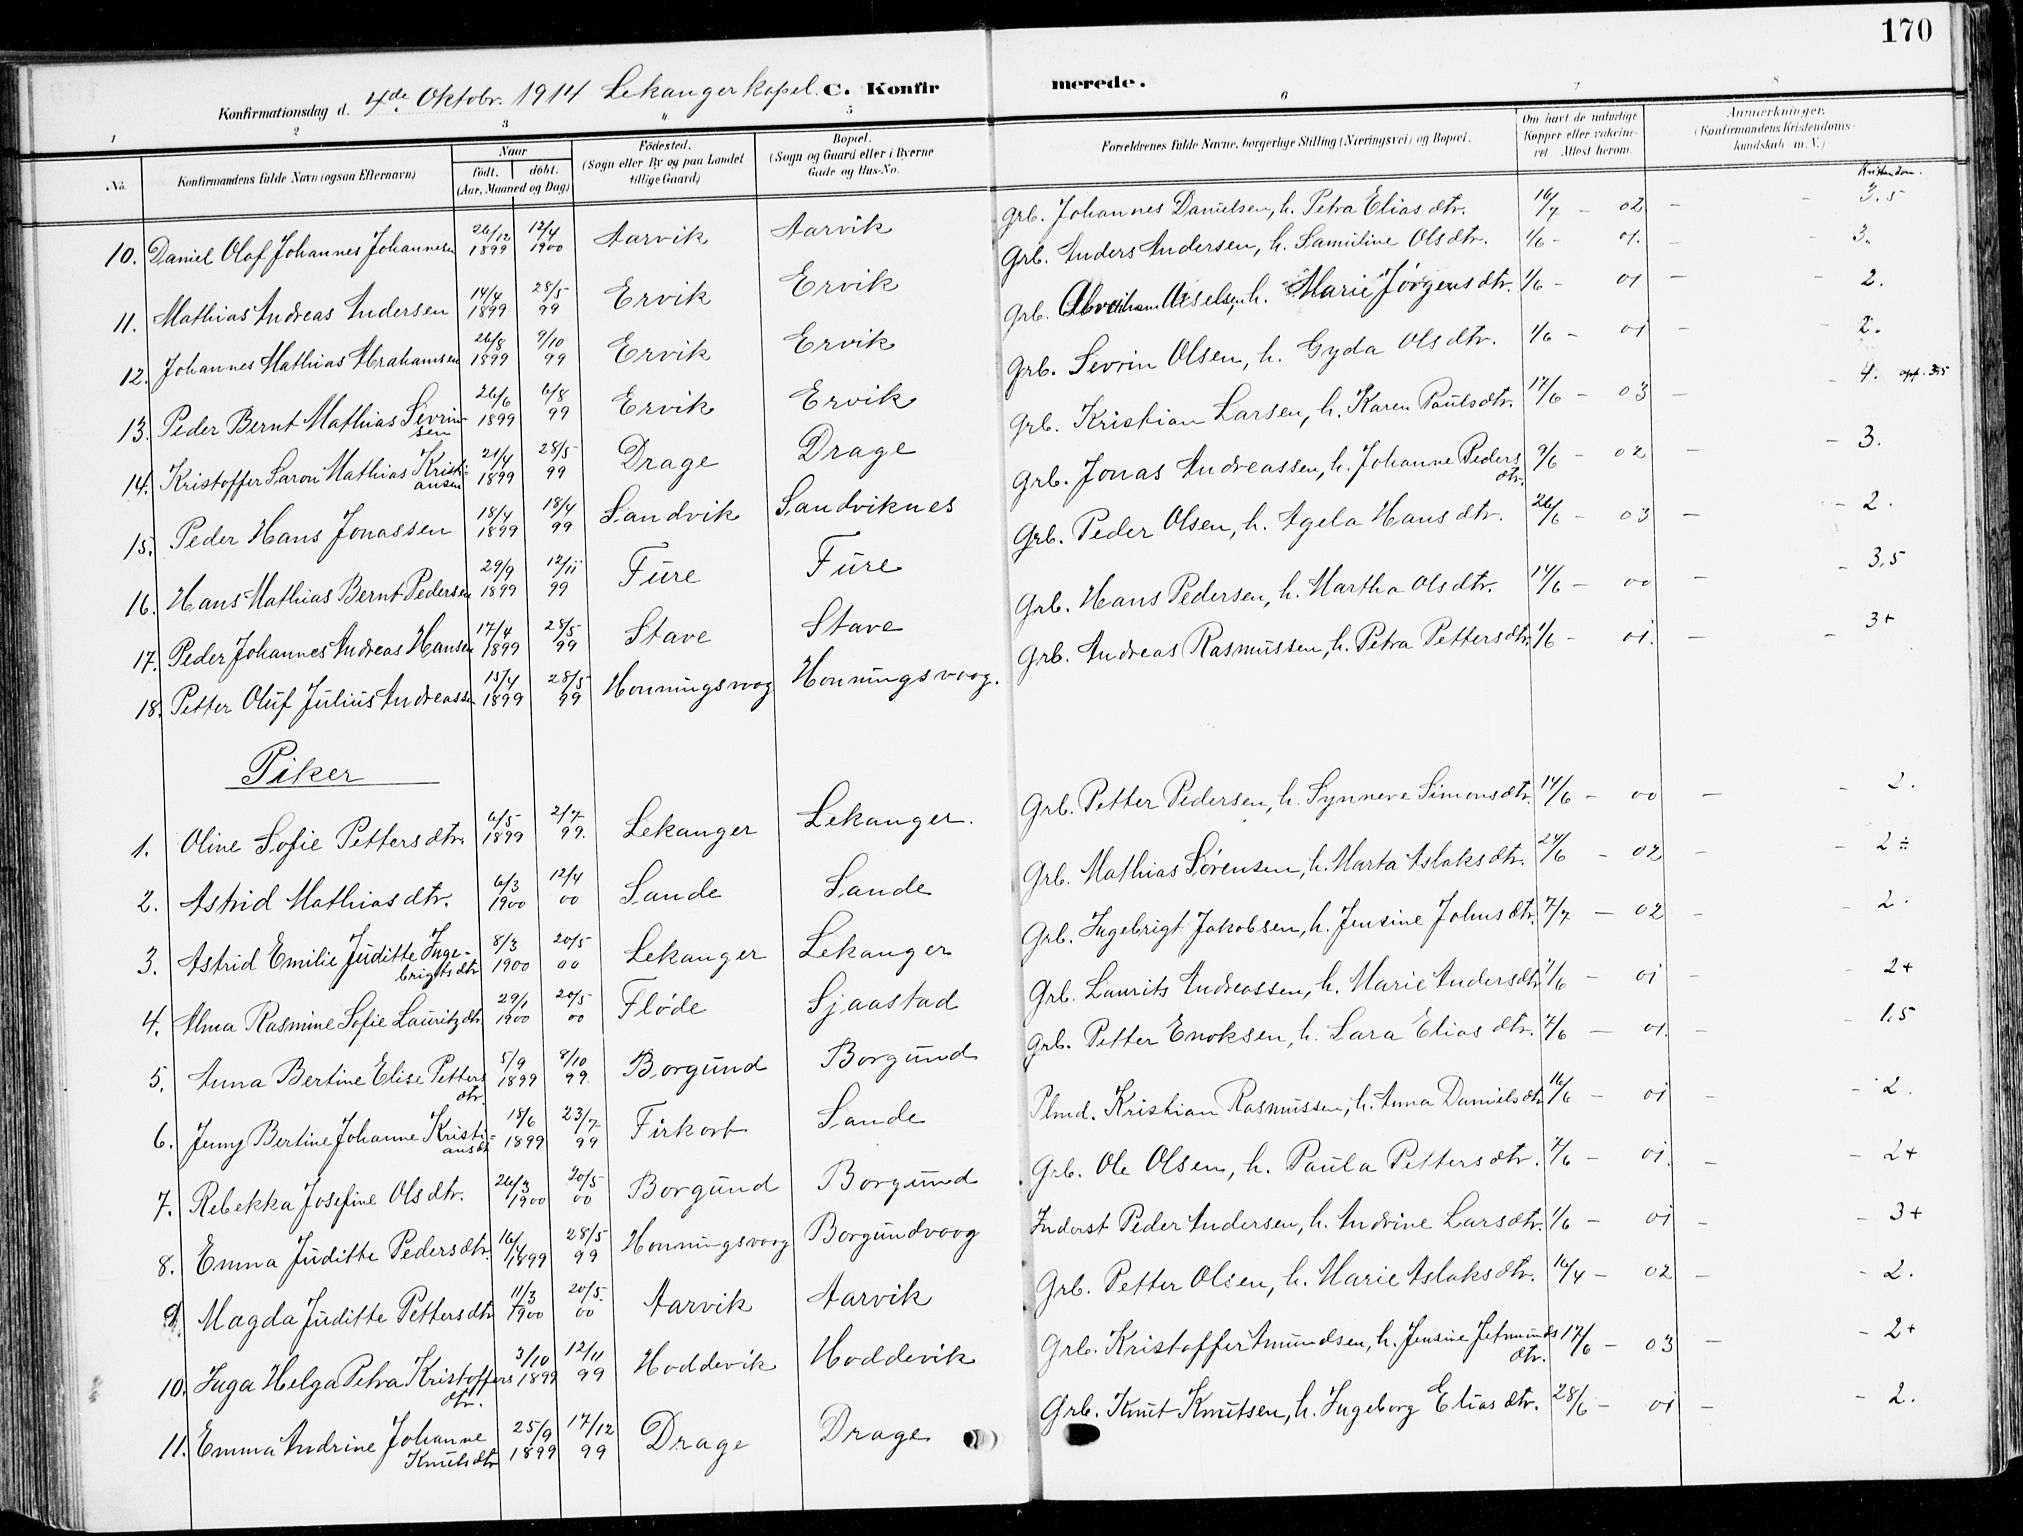 170
Konfirmationsdag d. 4de Oktobr. 1914 Lekanger kapel. C. Konfirmerede.
1 2 3 4 5 6 7 8
No. Konfirmandens fulde Navn (ogsaa Efternavn) Naar født. døbt. (Aar, Maaned og Dag) Fødested. (Sogn eller By og paa Landet tillige Gaard) Bopæl. (Sogn og Gaard eller i Byerne Gade og Hus-No. Forældrenes fulde Navne, borgerlige Stilling (Næringsvei) og Bopæl. Om havt de naturlige Kopper eller vakcineret. Attest herom. Anmærkninger. (Konfirmandens Kristendomskundskab m. V.)
Kristendom.
10. Daniel Olaf Johannes Johannesen 26/12 1899 12/4 1900 Aarvik Aarvik Grb. Johannes Danielsen, h. Petra Eliasdtr. 16/7 - 02 - - 3.5
11. Mathias Andreas Andersen 14/4 1899 28/5 99 Ervik Ervik Grb. Anders Andersen, h. Samuline Olsdtr. 1/6 - 01. - 3.
12. Johannes Mathias Abrahamsen 26/8 1899 9/10 99 Ervik Ervik Grb. Abraham Akselsen, h. Marie Jørgensdtr. 1/6 - 01 - - 2.
13. Peder Bernt Mathias Sevrinsen 26/6 1899 6/8 99 Ervik Ervik Grb. Sevrin Olsen, h. Gyda Olsdtr. 1/6 - 01 - - 2.
14. Kristoffer Saron Mathias Kristiansen 21/4 1899 28/5 99 Drage Drage Grb. Kristian Larsen, h. Karen Paulsdtr. 17/6 - 03 - - 4. opf. 3.5
15. Peder Hans Jonassen 18/4 1899 18/4 99 Sandvik Sandviknes Grb. Jonas Andreassen, h. Johanne Pedersdtr. 9/6 - 02 - - 3.
16. Hans Mathias Bernt Pedersen 29/9 1899 12/11 99 Fure Fure Grb. Peder Olsen, h. Agela Hansdtr. 26/6 - 03 - - 2.
17. Peder Johannes Andreas Hansen 17/4 1899 28/5 99 Stave Stave Grb. Hans Pedersen, h. Martha Olsdtr. 14/6 - 00 - - 3,5
18. Petter Oluf Julius Andreassen 15/4 1899 28/5 99 Honningsvaag Honningsvaag. Grb. Andreas Rasmussen, h. Petra Pettersdtr. 1/6 - 01. - - 3+
Piker
1. Oline Sofie Pettersdtr. 6/5 1899 2/7 99. Lekanger Lekanger. Grb. Petter Pedersen, h. Synneve Simonsdtr. 14/6 - 00 - - 2.
2. Astrid Mathiasdtr. 6/3 1900 12/4 00 Sande Sande Grb. Mathias Sørensen, h. Marta Aslaksdtr. 24/6 - 02 - - 2÷
3. Astrid Emilie Juditte Ingebrigtsdtr 8/3 1900 20/5 00 Lekanger Lekanger Grb. Ingebrigt Jakobsen, h. Jensine Johnsdtr. 7/7 - 02 - - 2.
4. Alma Rasmine Sofie Lauritzdtr 29/1 1900 20/5 00 Fløde Sjaastad Grb. Laurits Andreassen, h. Marie Andersdtr. 7/6 - 01 - - 2+
5. Anna Bertine Elise Pettersdtr. 5/9 1899 8/10 99. Borgund Borgund Grb. Petter Enoksen, h. Lara Eliasdtr. 7/6 - 01. - - 1.5
6. Jenny Bertine Johanne Kristiansdt 18/6 1899 23/7 99 Firkort Sande Plmd. Kristian Rasmussen, h. Anna Danielsdtr 16/6 - 01 - - 2.
7. Rebekka Josefine Olsdtr. 26/3 1900 20/5 00 Borgund Borgund Grb. Ole Olsen, h. Paula Pettersdtr. 7/6 - 01. - - 2+
8. Emma Juditte Pedersdtr. 16/4 1899 28/5 99 Honningsvaag Borgundvaag Inderst Peder Andersen, h. Andrine Larsdtr. 1/6 - 01 - - 3+
9. Magda Juditte Pettersdtr 11/3 1900 20/5. 00 Aarvik Aarvik Grb. Petter Olsen, h. Marie Aslaksdtr. 16/4 - 02 - - 2.
10. Inga Helga Petra Kristoffersdtr. 3/10 1899 12/11 99 Hoddevik Hoddevik Grb. Kristoffer Amundsen, h. Jensine Jetmundsdtr. 17/6 - 03 - - 2+
11. Emma Andrine Johanne Knutsdtr 25/9 1899 17/12 99 Drage Drage Grb. Knut Knutsen, h. Ingeborg Eliasdtr. 28/6 - 01 - - 2.